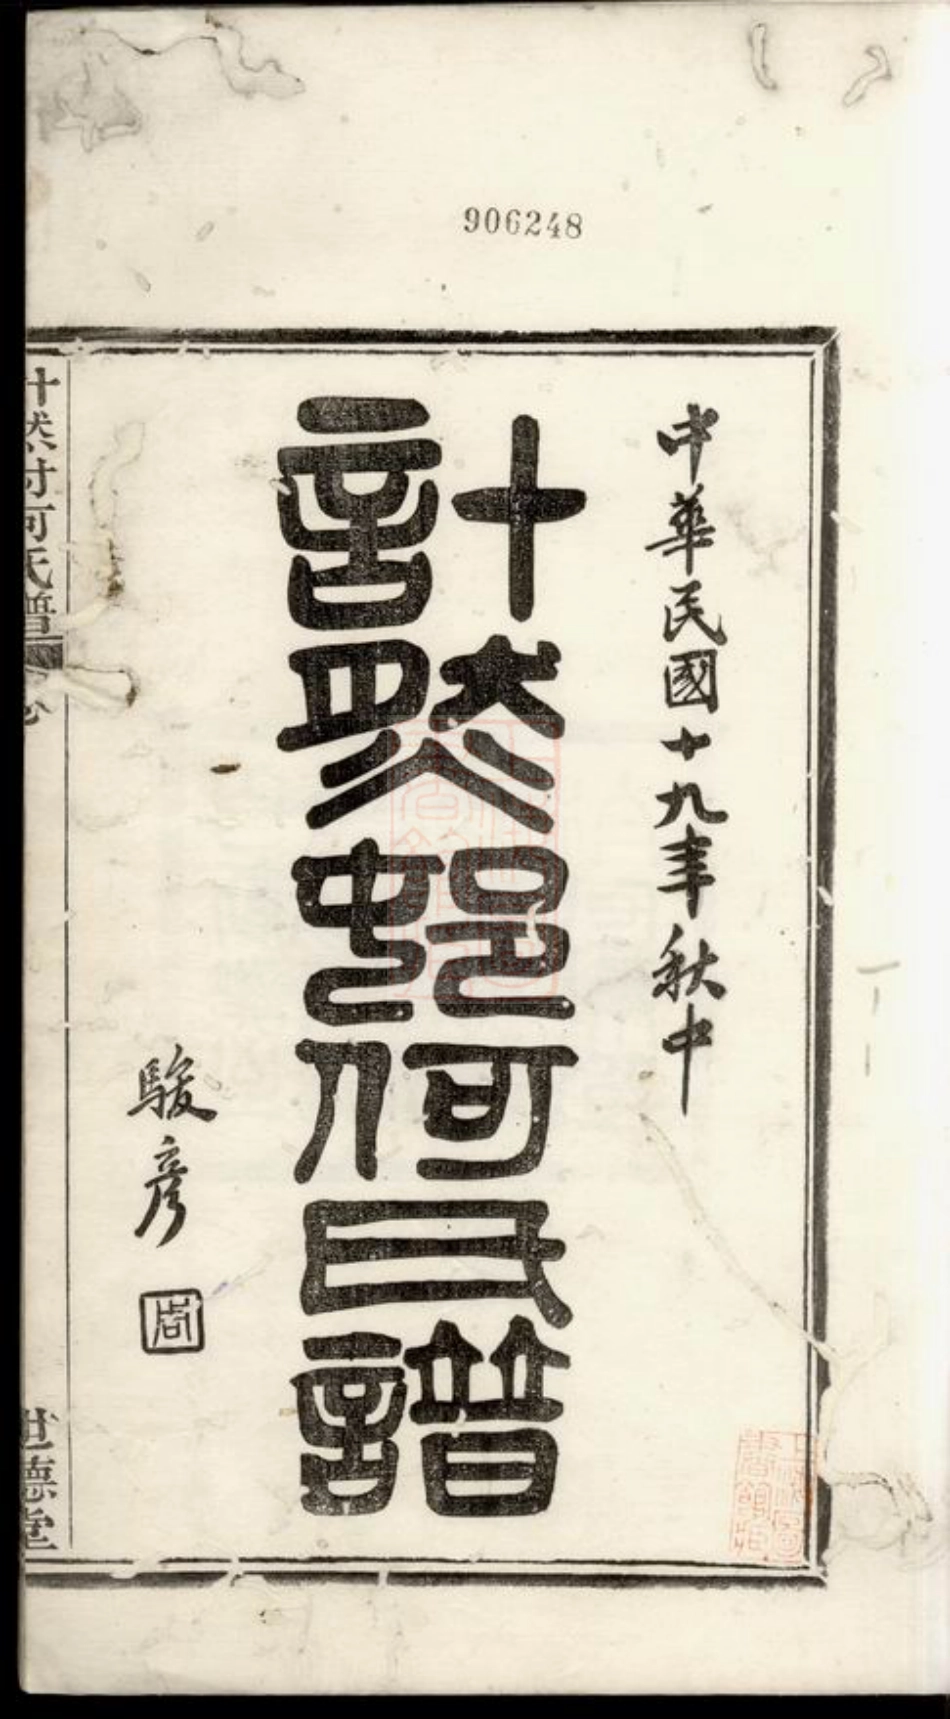 906248
中華民國十九年秋中
計然邨何氏譜
駿彥
計然村何氏譜
世德堂